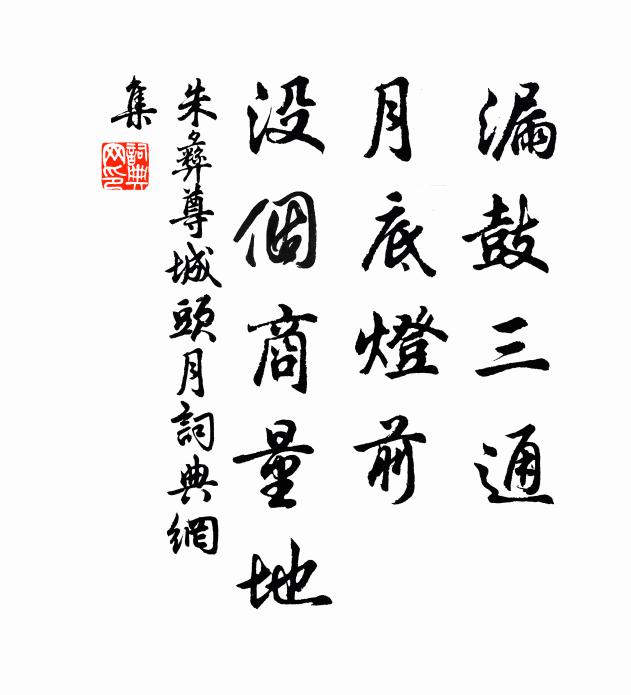 漏鼓三通
月底燈前
没個商量地
朱彝尊城頭月詞典網
集
詞典
网印